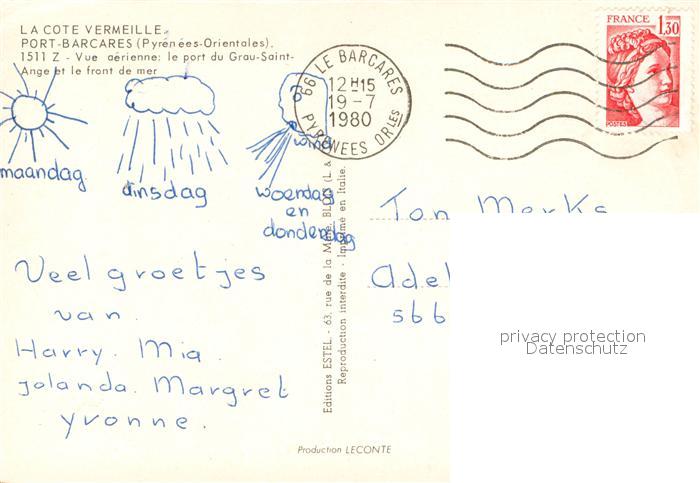 LA COTE VERMEILLE
PORT-BARCARES (Pyrénées-Orientales).
1511 Z - Vue aérienne: le port du Grau-Saint-
Ange et le front de mer
66 LE BARCARES
12H15
19-7
1980
PYRENEES OR LES
FRANCE
1,30
POSTES
maandag
dinsdag
wind
woendag
en
donderdag
Veel groetjes
van.
Harry. Mia.
Jolanda. Margret
yvonne.
Editions ESTEL - 63, rue de la
Reproduction interdite - Imprimé en Italie.
Production LECONTE
Ton Merks
Adel
566
privacy protection
Datenschutz